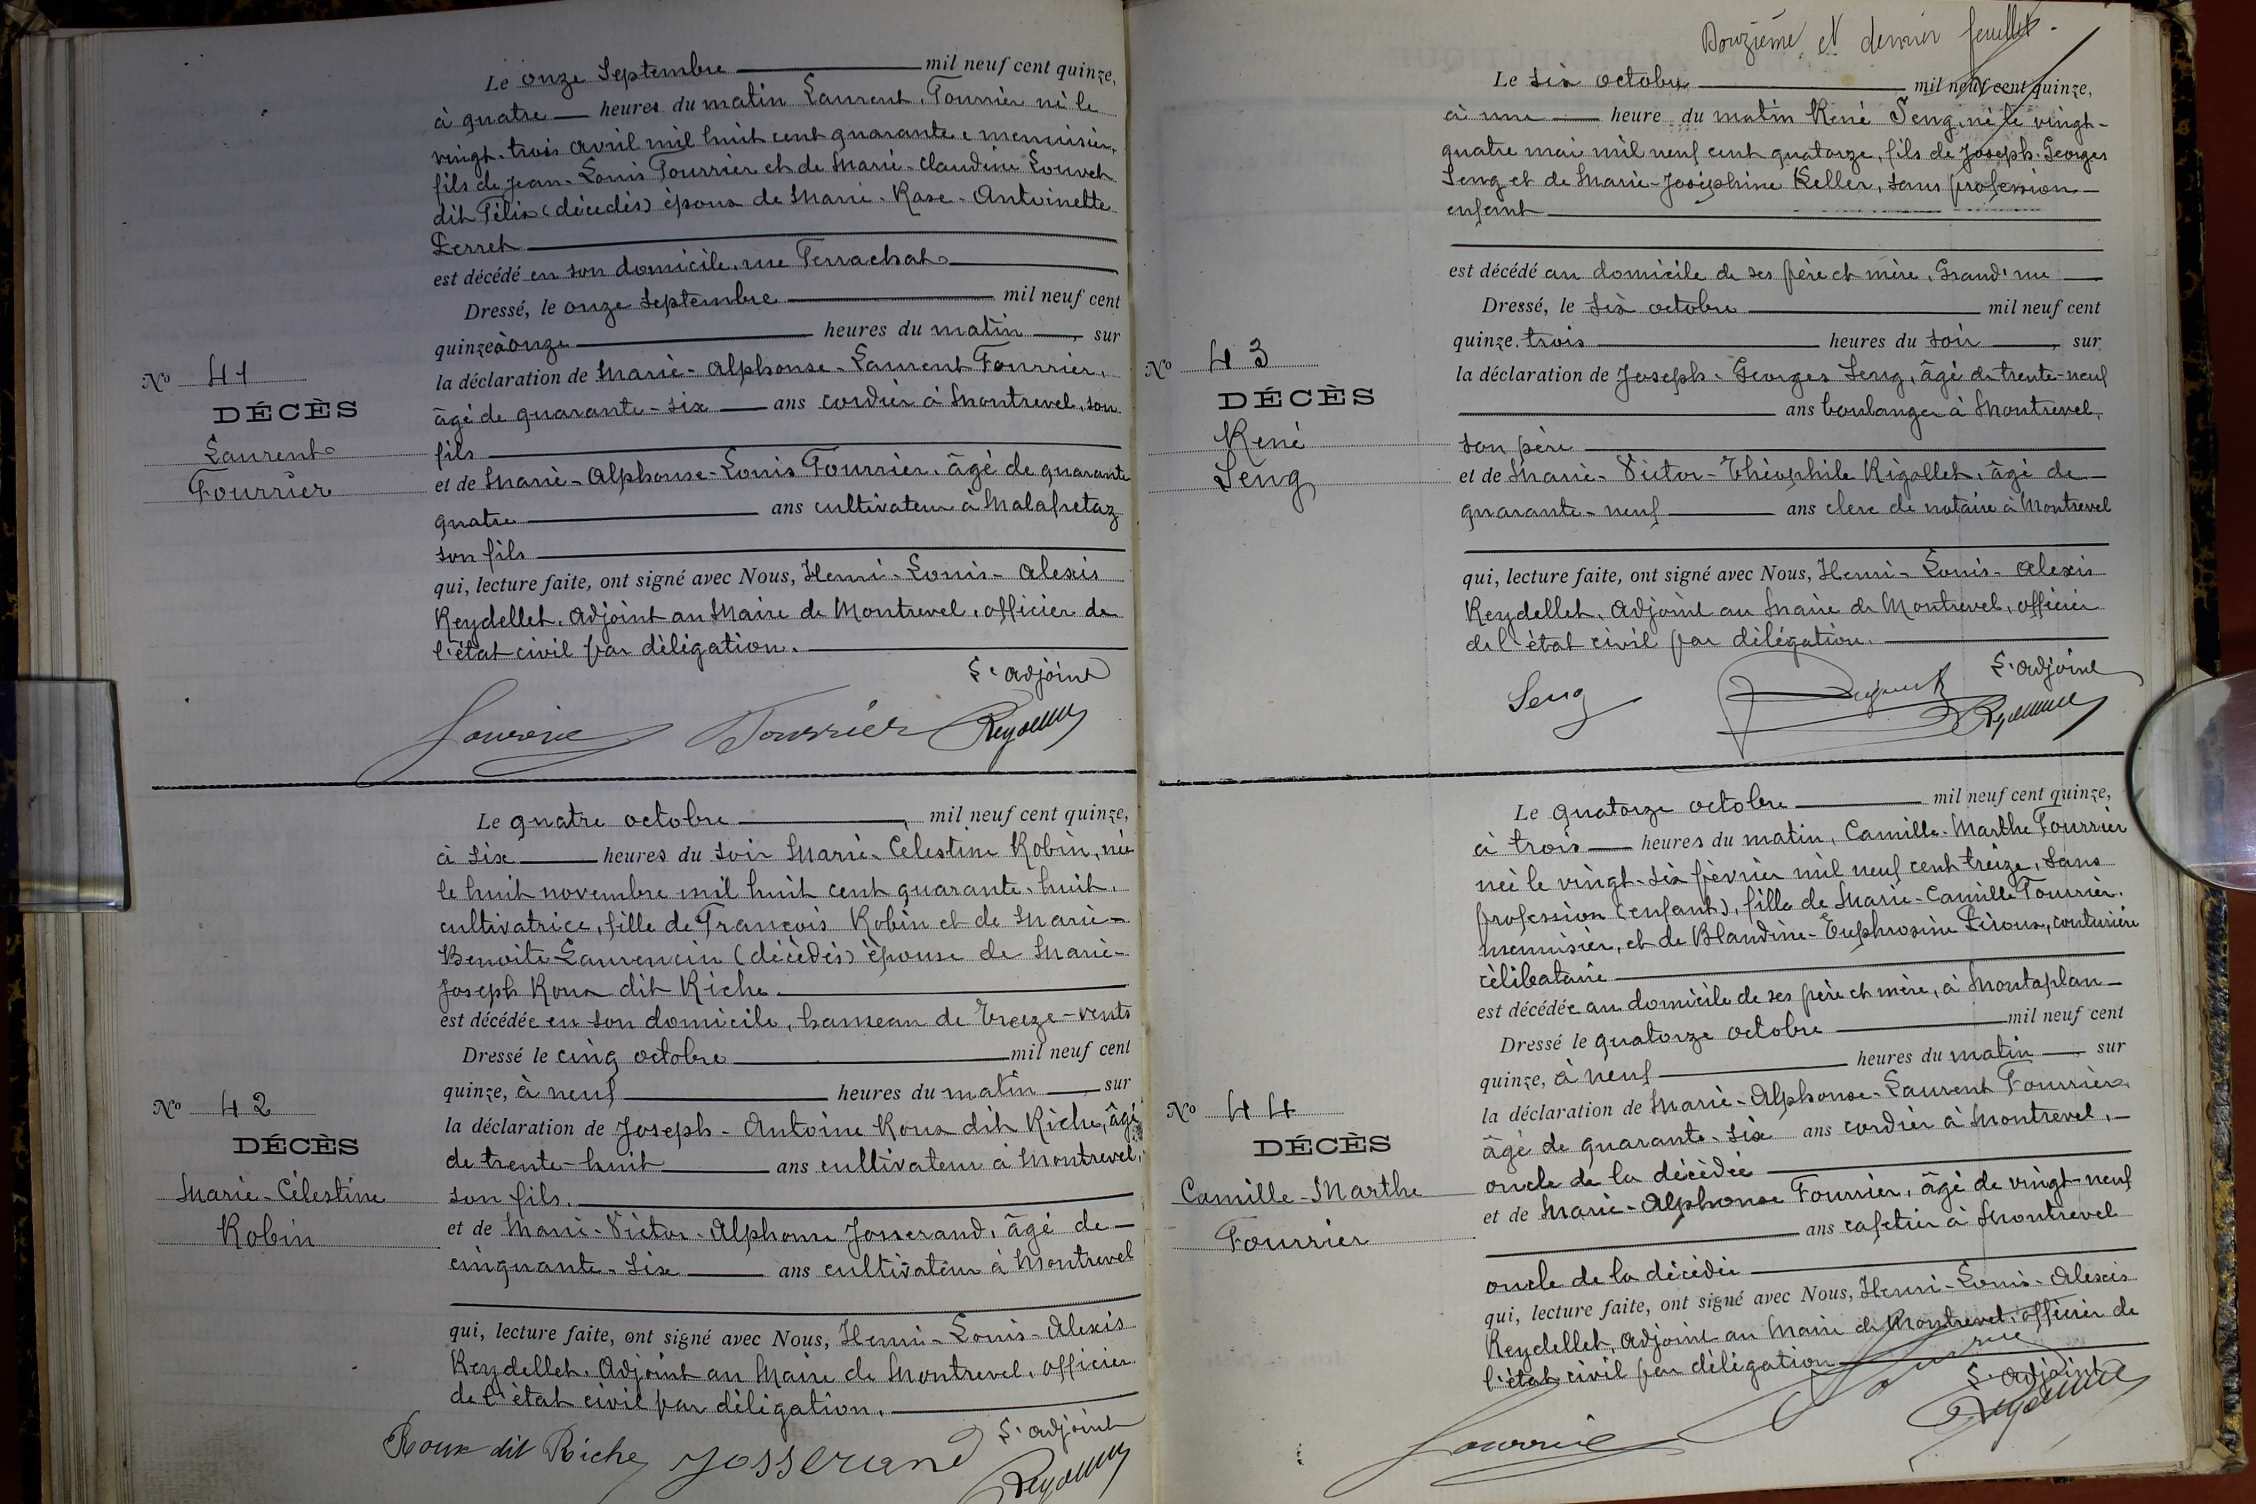 Le onze Septembre mil neuf cent quinze,
à quatre heures du matin Laurent Fourrier né le
vingt-trois avril mil huit cent quarante menuisier,
fils de Jean-Louis Fourrier et de Marie-Claudine Louvet
dit Félix (décédés) époux de Marie-Rose-Antoinette
Perret
est décédé en son domicile, rue Ferrachat
Dressé, le onze Septembre mil neuf cent
quinze à onze heures du matin, sur
la déclaration de Marie-Alphonse-Laurent Fourrier,
âgé de quarante-six ans cordier à Montrevel, son
fils
et de Marie-Alphonse-Louis Fourrier, âgé de quarante
quatre ans cultivateur à Malafretaz
son fils
qui, lecture faite, ont signé avec Nous, Henri-Louis-Alexis
Reydellet, Adjoint au Maire de Montrevel, officier de
l'état civil par délégation.
L'adjoint
Fourrier Reydellet
No 41
DÉCÈS
Laurent
Fourrier
Le quatre octobre, mil neuf cent quinze,
à six heures du soir Marie-Célestine Robin, née
le huit novembre mil huit cent quarante-huit,
cultivatrice, fille de François Robin et de Marie-
Benoîte Laurencin (décédés) épouse de Marie-
Joseph Roux dit Riche
est décédée en son domicile, hameau de Treize-vents
Dressé le cinq octobre mil neuf cent
quinze, à neuf heures du matin sur
la déclaration de Joseph-Antoine Roux dit Riche, âgé
de trente-huit ans cultivateur à Montrevel,
son fils.
et de Marie-Victor-Alphonse Josserand, âgé de
cinquante-six ans cultivateur à Montrevel
qui, lecture faite, ont signé avec Nous, Henri-Louis-Alexis
Reydellet, Adjoint au Maire de Montrevel, officier
de l'état civil par délégation.
L'adjoint
Roux dit Riche Josserand Reydellet
No 42
DÉCÈS
Marie-Célestine
Robin
Douzième et dernier feuillet.
Le six octobre mil neuf cent quinze,
à une heure du matin René Seng, né le vingt-
quatre mai mil neuf cent quatorze, fils de Joseph-Georges
Seng et de Marie-Joséphine Keller, sans profession
enfant
est décédé au domicile de ses père et mère, Grand'rue
Dressé, le six octobre mil neuf cent
quinze, trois heures du soir, sur
la déclaration de Joseph-Georges Seng, âgé de trente-neuf
ans boulanger à Montrevel,
son père
et de Marie-Victor-Théophile Rigollet, âgé de
quarante-neuf ans clerc de notaire à Montrevel
qui, lecture faite, ont signé avec Nous, Henri-Louis-Alexis
Reydellet, Adjoint au Maire de Montrevel, officier
de l'état civil par délégation.
L'adjoint
Seng Reydellet
No 43
DÉCÈS
René
Seng
Le quatorze octobre mil neuf cent quinze,
à trois heures du matin, Camille-Marthe Fourrier
née le vingt-six février mil neuf cent treize, sans
profession (enfant), fille de Marie-Camille Fourrier,
menuisier, et de Blandine-Euphrosine Piroux, couturière
célibataire
est décédée au domicile de ses père et mère, à Montaplan
Dressé le quatorze octobre mil neuf cent
quinze, à neuf heures du matin, sur
la déclaration de Marie-Alphonse-Laurent Fourrier,
âgé de quarante-six ans cordier à Montrevel,
oncle de la décédée
et de Marie-Alphonse Fourrier, âgé de vingt-neuf
ans cafetier à Montrevel
oncle de la décédée
qui, lecture faite, ont signé avec Nous, Henri-Louis-Alexis
Reydellet, Adjoint au Maire de Montrevel, officier de
l'état civil par délégation
L'adjoint
Reydellet
No 44
DÉCÈS
Camille-Marthe
Fourrier